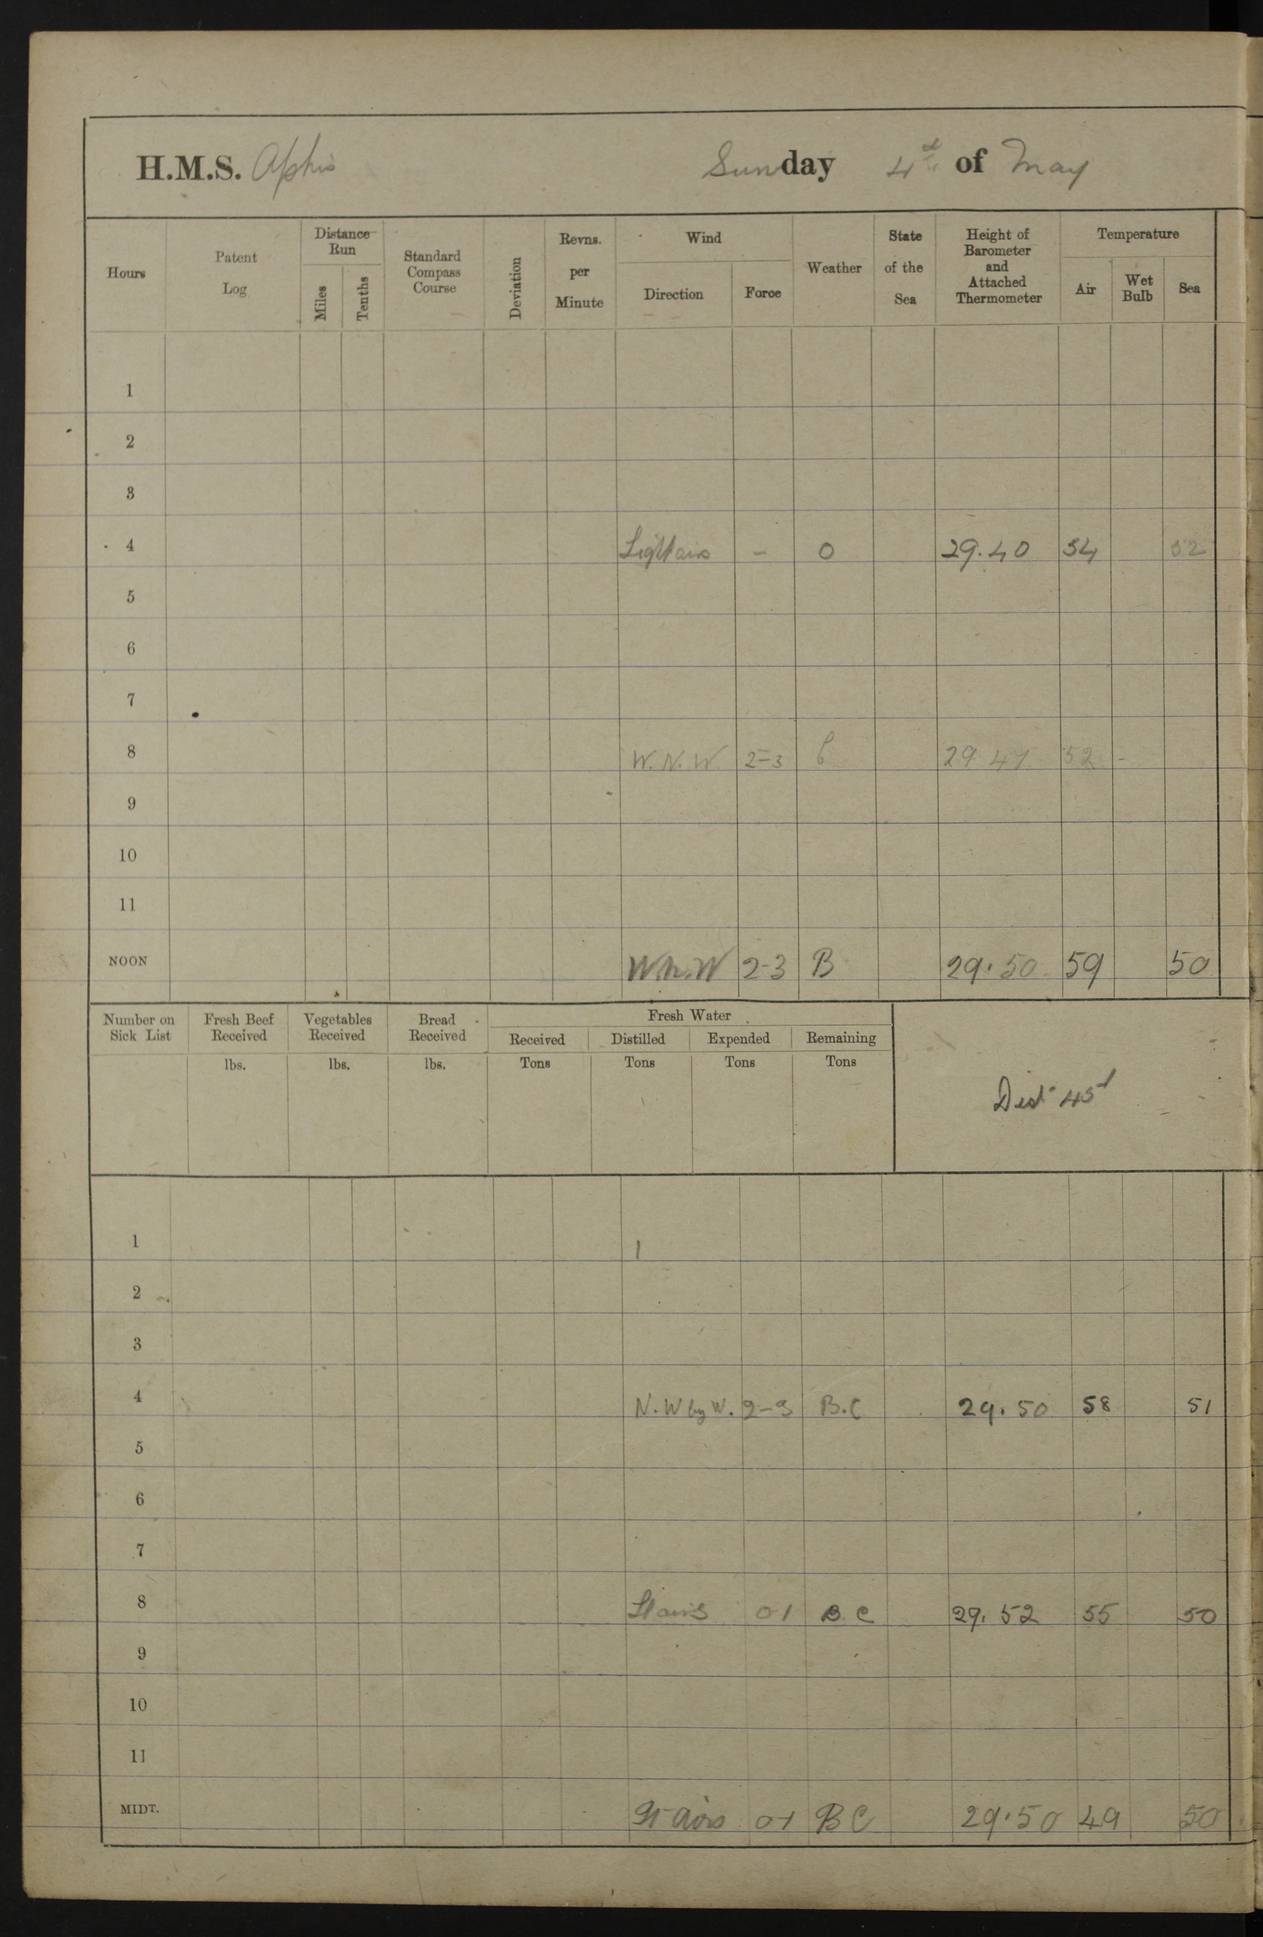 H.M.S. Aphis Sunday 4th of May
Hours Patent Log Distance Run Miles Tenths Standard Compass Course Deviation Revns. per Minute Wind Direction Force Weather State of the Sea Height of Barometer and Attached Thermometer Temperature Air Wet Bulb Sea
1
2
3
4 Light airs - O 29.40 54 52
5
6
7
8 W.N.W. 2-3 b 29.47 52 -
9
10
11
NOON W.N.W 2-3 B 29.50 59 50
Number on Sick List Fresh Beef Received lbs. Vegetables Received lbs. Bread Received lbs. Fresh Water Received Tons Distilled Tons Expended Tons Remaining Tons
Dist 45
1
2
3
4 N.W by W. 2-3 B.C 29.50 58 51
5
6
7
8 Lt airs 01 B.C 29.52 55 50
9
10
11
MIDT. Lt airs 01 BC 29.50 49 50